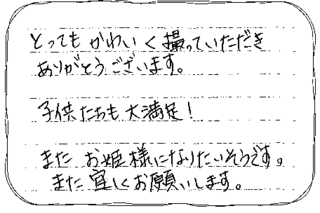 とってもかわいく撮っていただき
ありがとうございます。
子供たちも大満足!
また お姫様になりたいそうです。
また宜しくお願いします。